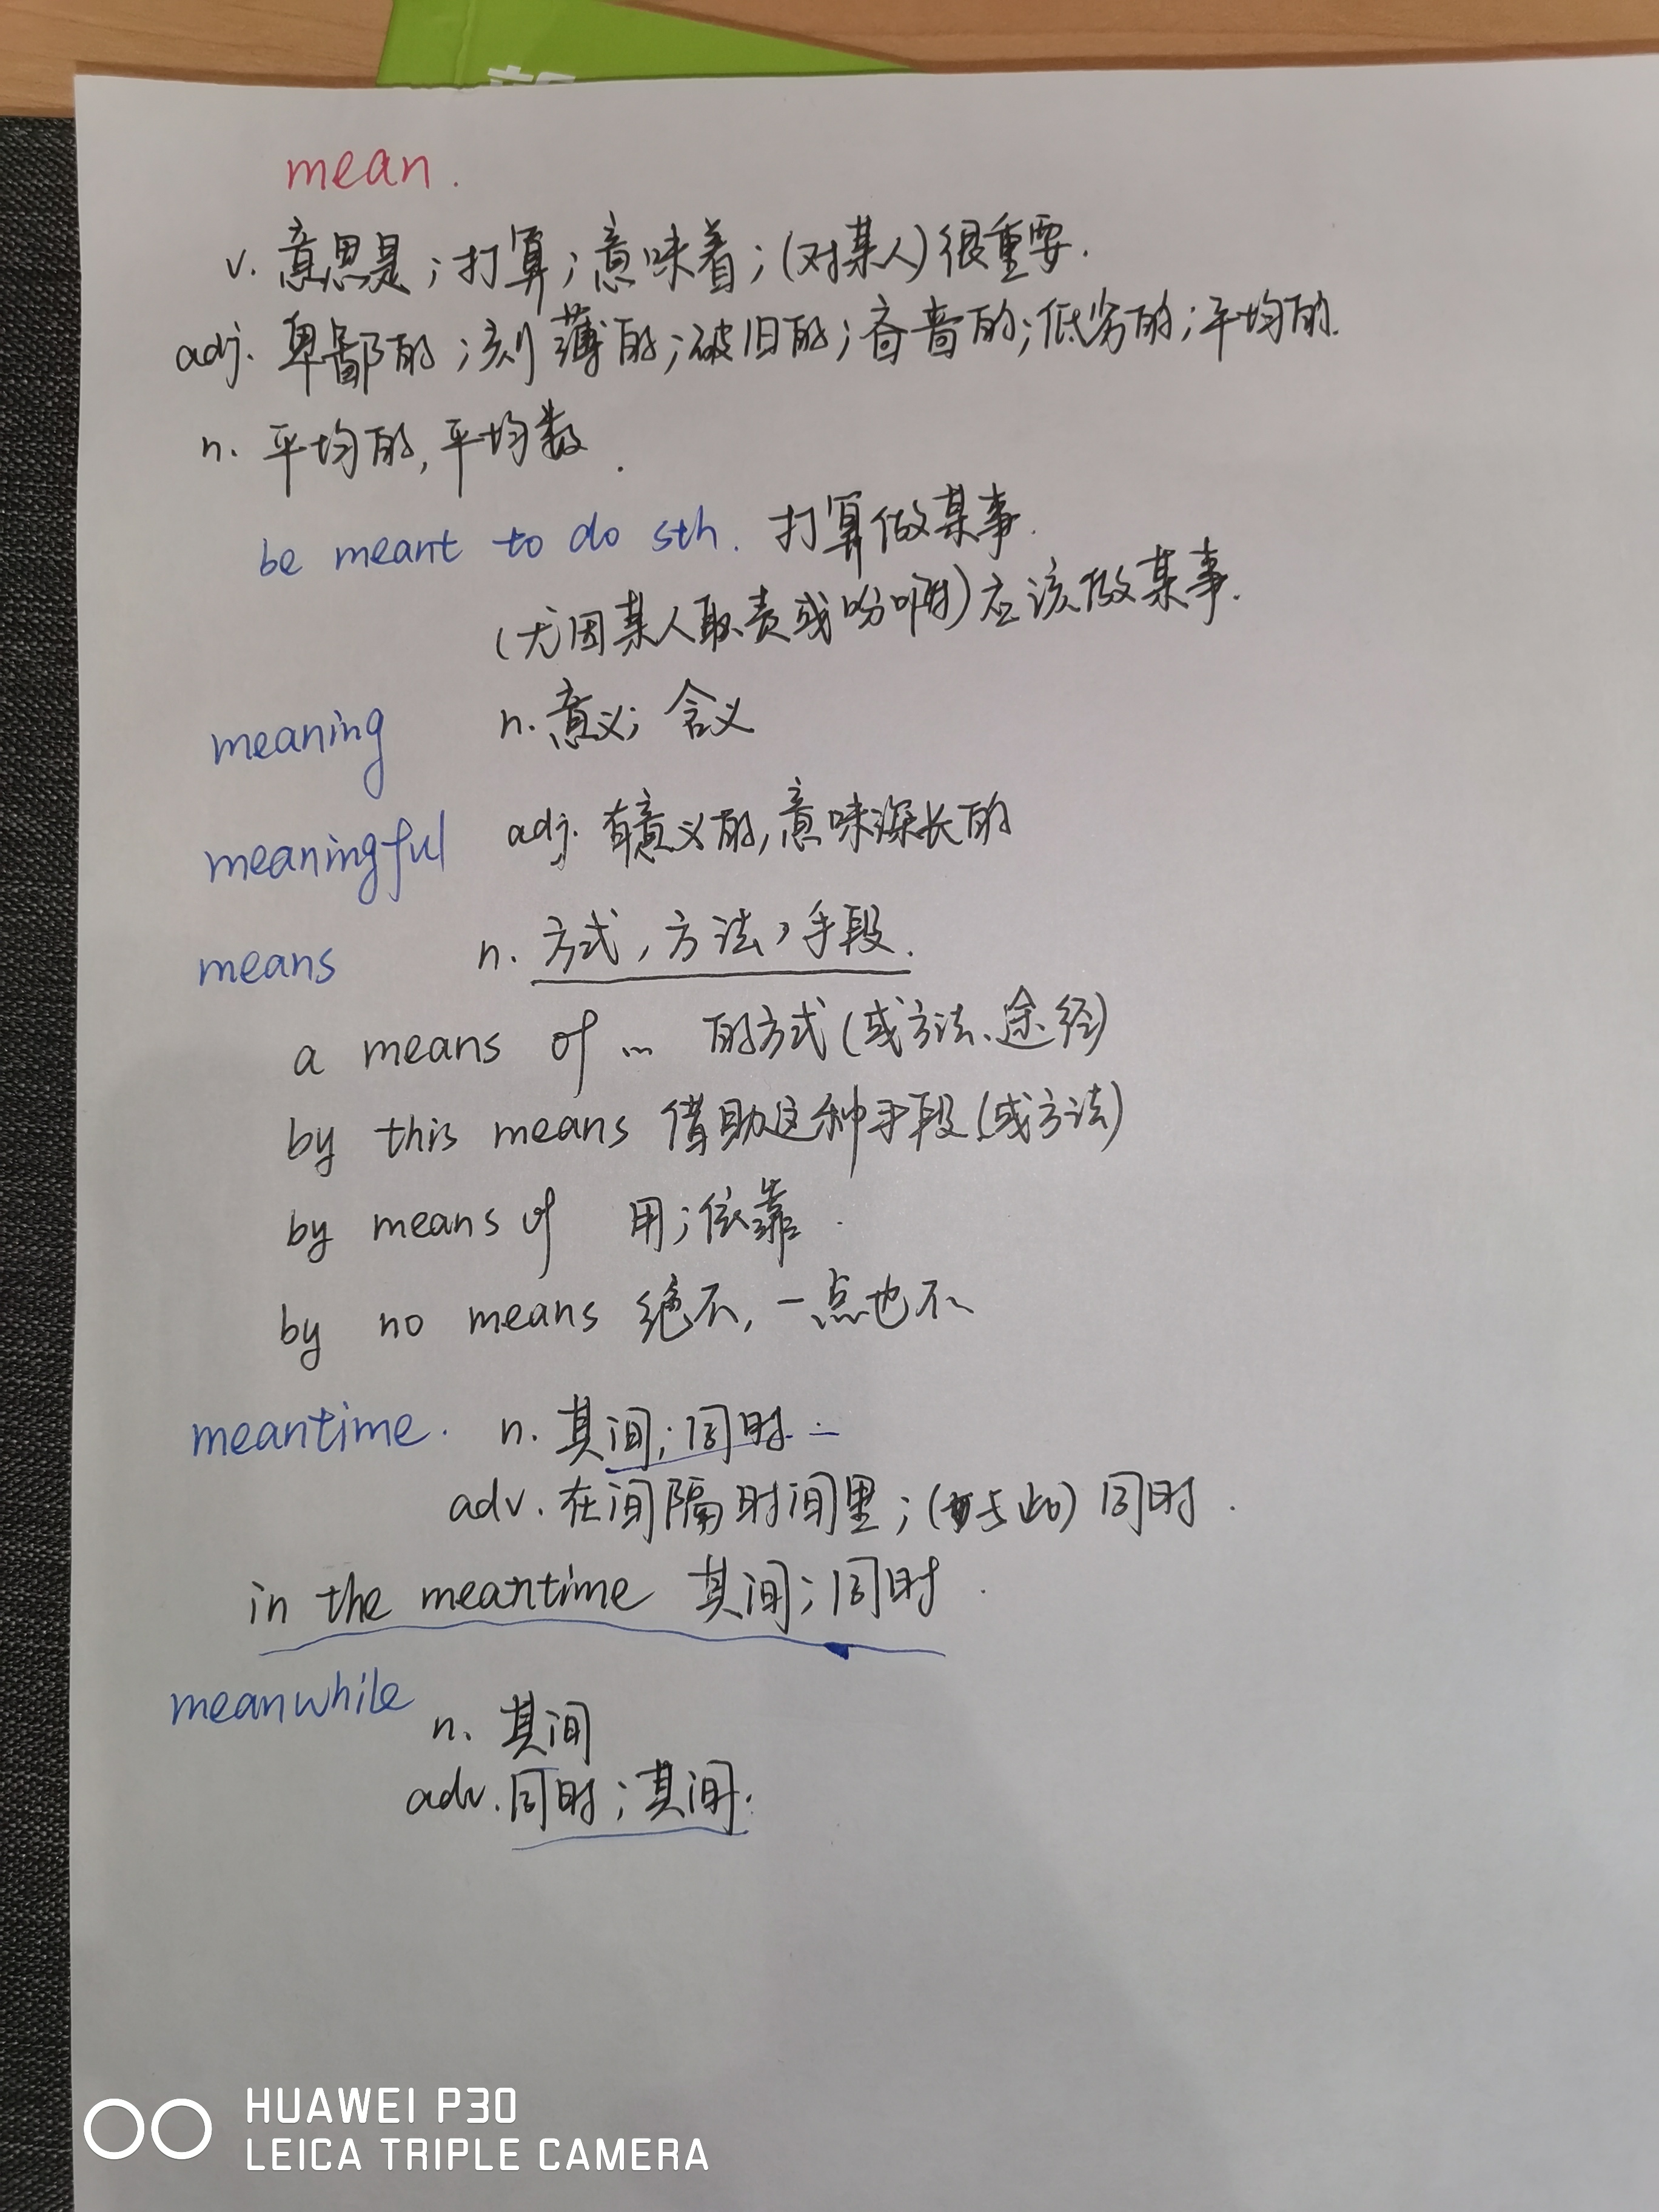 mean.
v. 意思是；打算；意味着；(对某人)很重要.
adj. 卑鄙的；刻薄的；破旧的；吝啬的；低劣的；平均的.
n. 平均的,平均数.
be meant to do sth. 打算做某事.
(尤因某人职责或吩咐)应该做某事.
meaning n. 意义；含义
meaningful adj. 有意义的,意味深长的
means n. 方式,方法,手段.
a means of … 的方式(或方法、途径)
by this means 借助这种手段(或方法)
by means of 用；依靠.
by no means 绝不,一点也不
meantime. n. 其间；同时.
adv. 在间隔时间里；(与此)同时.
in the meantime 其间；同时.
meanwhile n. 其间
adv. 同时；其间.
HUAWEI P30
LEICA TRIPLE CAMERA